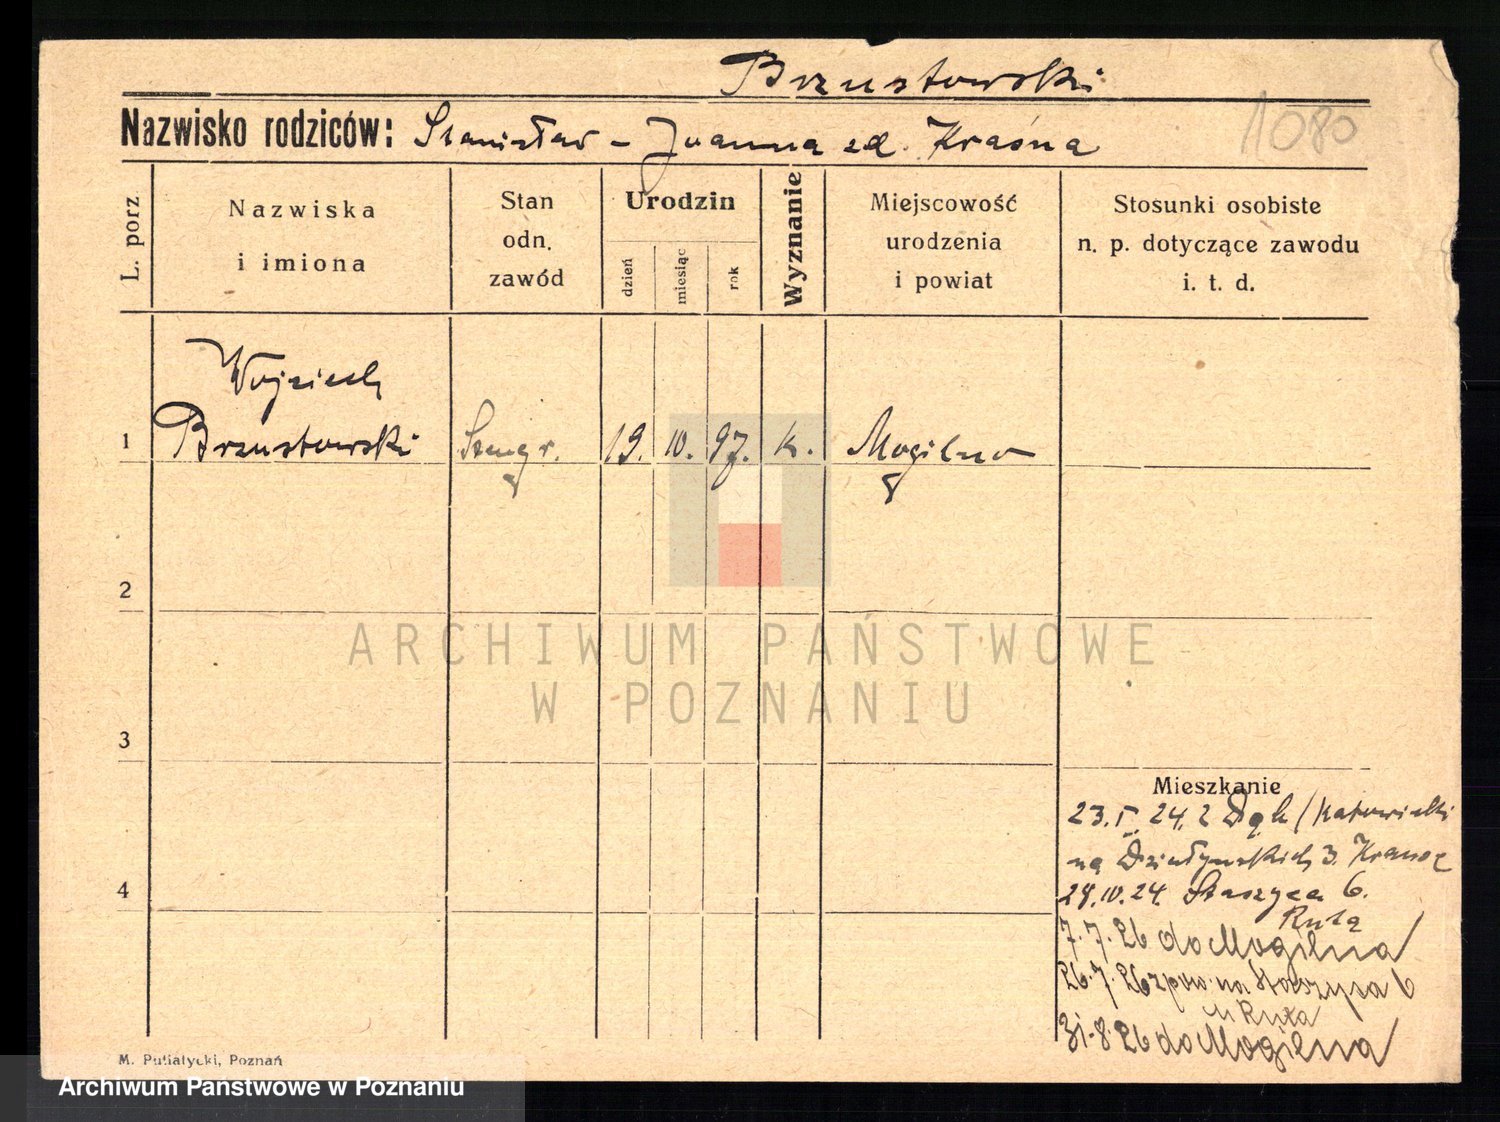 Brzustowski
1080
Nazwisko rodziców: Stanisław – Joanna zd. Kraśna
L. porz.
Nazwiska
i imiona
Stan
odn.
zawód
Urodzin
dzień
miesiąc
rok
Wyznanie
Miejscowość
urodzenia
i powiat
Stosunki osobiste
n. p. dotyczące zawodu
i. t. d.
Wojciech
1 Brzustowski 19. 10. 97. k. Mogilno
2
3
4
ARCHIWUM PAŃSTWOWE
W POZNANIU
Mieszkanie
23. I. 24. z Dąb /Katowickie
na Działyńskich 3.
24. IV. 24. Staszyca 6.
Ruta
7. 7. 26 do Mogilna
26. 7. 26 zpow. na Staszyca 6
u Ruta
31. 8. 26 do Mogilna
M. Putiatycki, Poznań
Archiwum Państwowe w Poznaniu